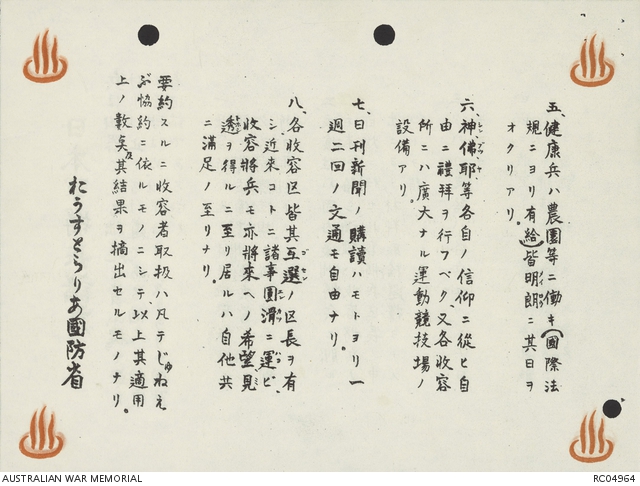 五、健康兵ハ農園等ニ働キ(國際法
規ニヨリ有給)皆明朗ニ其日ヲ
オクリアリ。
六、神佛耶等各自ノ信仰ニ從ヒ自
由ニ禮拜ヲ行フベク、又各收容
所ニハ廣大ナル運動競技場ノ
設備アリ。
七、日刊新聞ノ購讀ハモトヨリ一
週二回ノ文通モ自由ナリ。
八、各收容区皆其互選ノ区長ヲ有
シ近來コトニ諸事圓滑ニ運ビ、
收容將兵モ亦將來ヘノ希望、見
透ヲ得ルニ至リ居ルハ自他共
ニ滿足ノ至リナリ。
要約スルニ收容者取扱ハ凡テじゅねえ
ぶ協約ニ依ルモノニシテ、以上其適用
上ノ數矣及其結果ヲ摘出セルモノナリ。
おうすとらりあ國防省
AUSTRALIAN WAR MEMORIAL
RC04964